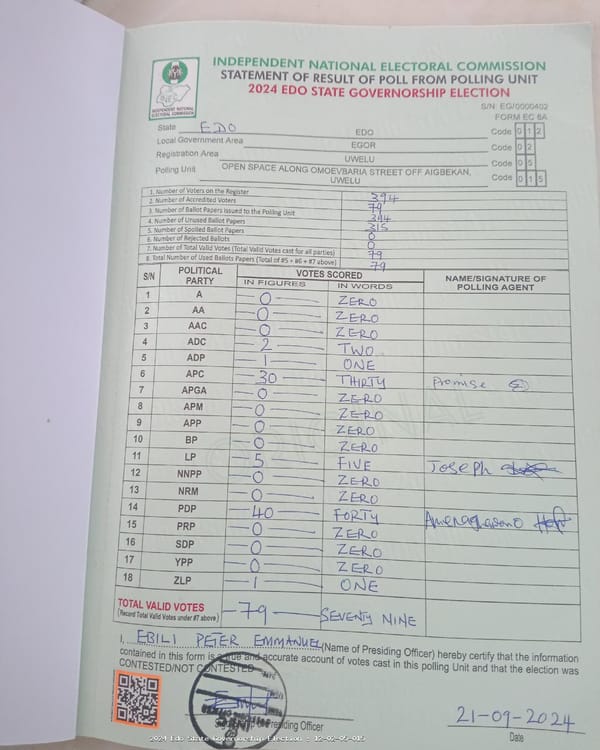 INDEPENDENT NATIONAL ELECTORAL COMMISSION
STATEMENT OF RESULT OF POLL FROM POLLING UNIT
2024 EDO STATE GOVERNORSHIP ELECTION
INDEPENDENT NATIONAL ELECTORAL COMMISSION
S/N: EG/0000402
FORM EC 8A
State EDO EDO Code 0 1 2
Local Government Area EGOR Code 0 2
Registration Area UWELU Code 0 5
Polling Unit OPEN SPACE ALONG OMOEVBARIA STREET OFF AIGBEKAN, UWELU Code 0 1 5
1. Number of Voters on the Register 394
2. Number of Accredited Voters 79
3. Number of Ballot Papers issued to the Polling Unit 394
4. Number of Unused Ballot Papers 315
5. Number of Spoiled Ballot Papers 0
6. Number of Rejected Ballots 0
7. Number of Total Valid Votes (Total Valid Votes cast for all parties) 79
8. Total Number of Used Ballots Papers (Total of #5 + #6 + #7 above) 79
S/N POLITICAL PARTY VOTES SCORED NAME/SIGNATURE OF POLLING AGENT
IN FIGURES IN WORDS
1 A 0 ZERO
2 AA 0 ZERO
3 AAC 0 ZERO
4 ADC 2 TWO
5 ADP 1 ONE
6 APC 30 THIRTY Promise
7 APGA 0 ZERO
8 APM 0 ZERO
9 APP 0 ZERO
10 BP 0 ZERO
11 LP 5 FIVE Joseph
12 NNPP 0 ZERO
13 NRM 0 ZERO
14 PDP 40 FORTY
15 PRP 0 ZERO
16 SDP 0 ZERO
17 YPP 0 ZERO
18 ZLP 1 ONE
TOTAL VALID VOTES 79 SEVENTY NINE
(Record Total Valid Votes under #7 above)
I, EBILI PETER EMMANUEL (Name of Presiding Officer) hereby certify that the information
contained in this form is a true and accurate account of votes cast in this polling Unit and that the election was
CONTESTED/NOT CONTESTED
Presiding Officer
21-09-2024
Date
2024 Edo State Governorship Election - 12-02-05-015